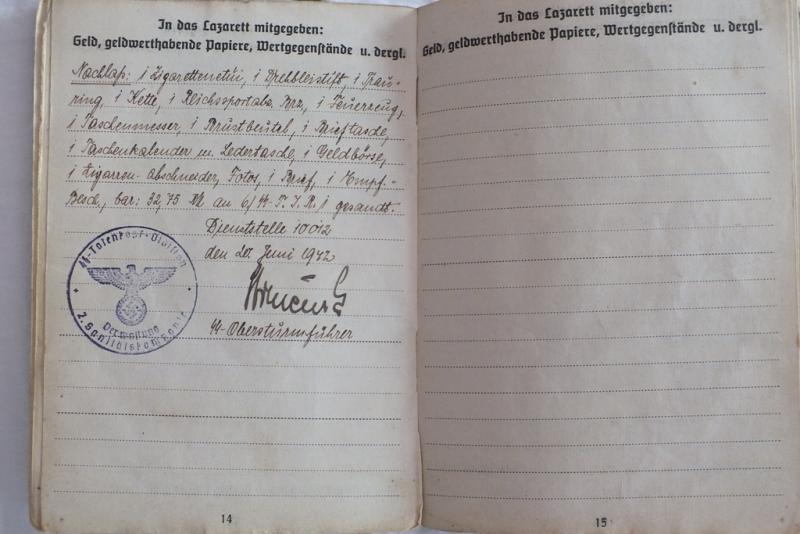 In das Lazarett mitgegeben:
Geld, geldwerthabende Papiere, Wertgegenstände u. dergl.
Nachlaß: 1 Zigarettenetui, 1 Drehbleistift, 1 Trau-
ring, 1 Kette, 1 Reichssportabz. Brz., 1 Feuerzeug,
1 Taschenmesser, 1 Brustbeutel, 1 Brieftasche,
1 Taschenkalender m. Ledertasche, 1 Geldbörse,
1 Zigarren-abschneider, Fotos, 1 Brief, 1 Empf.-
Besch., bar: 32,75 RM an 6/SS-T.I.R. 1 gesandt.
Dienststelle 10012
den 20. Juni 1942
SS-Obersturmführer
SS-Totenkopf-Division
Verwaltung
2. Sanitätskompanie
14
In das Lazarett mitgegeben:
Geld, geldwerthabende Papiere, Wertgegenstände u. dergl.
15